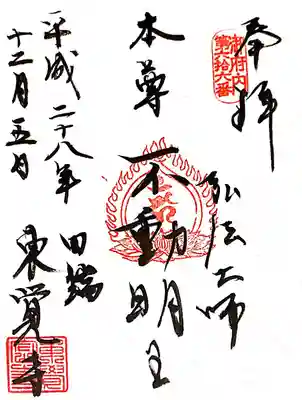 奉拝
御府内
弘法大師
本尊 不動明王
平成二十八年
十二月五日
田端
東覚寺